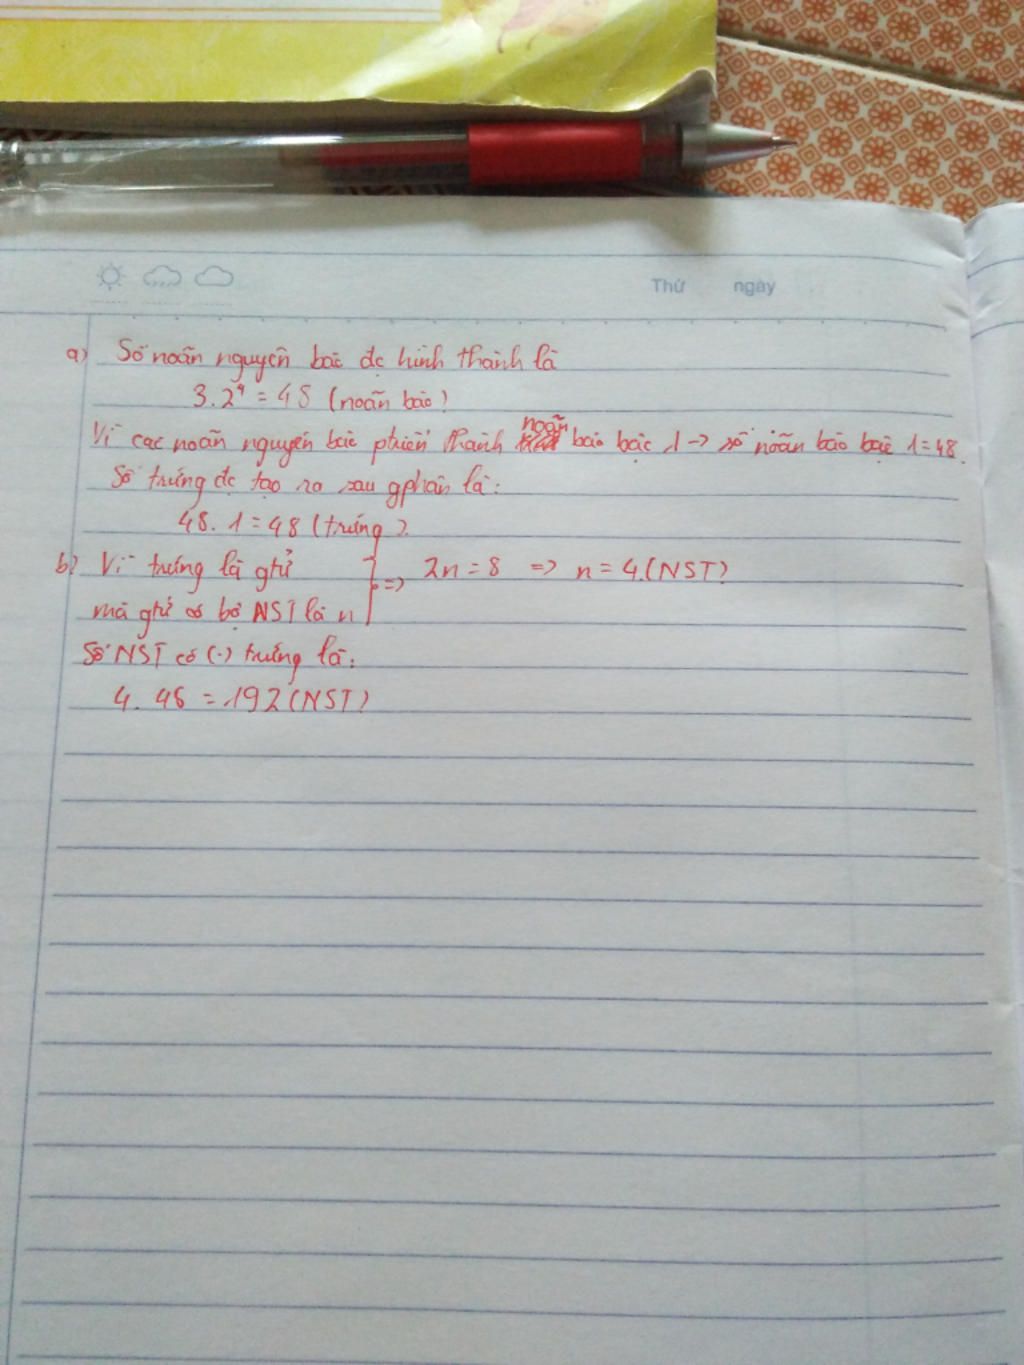 Thứ ngày
a) Số noãn nguyên bào đc hình thành là
3.2⁴ = 48 (noãn bào)
Vì các noãn nguyên bào phát triển thành noãn bào bậc 1 -> số noãn bào bậc 1 = 48.
Số trứng đc tạo ra sau gphân là:
48. 1 = 48 (trứng).
b) Vì trứng là gtử
mà gtử có bộ NST là n } => 2n = 8 => n = 4.(NST)
Số NST có (.) trứng là:
4. 48 = 192 (NST)